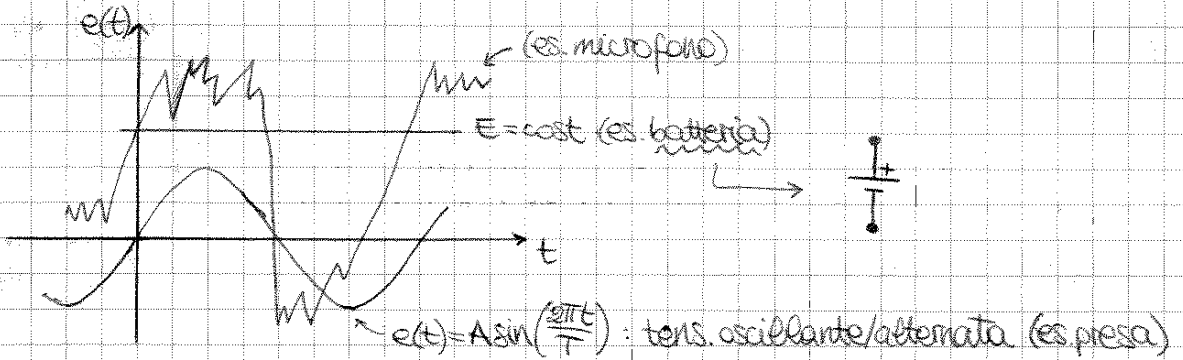 e(t)
(es. microfono)
E = cost (es. batteria)
+
t
e(t) = A sin(2πt/T) : tens. oscillante/alternata (es. presa)